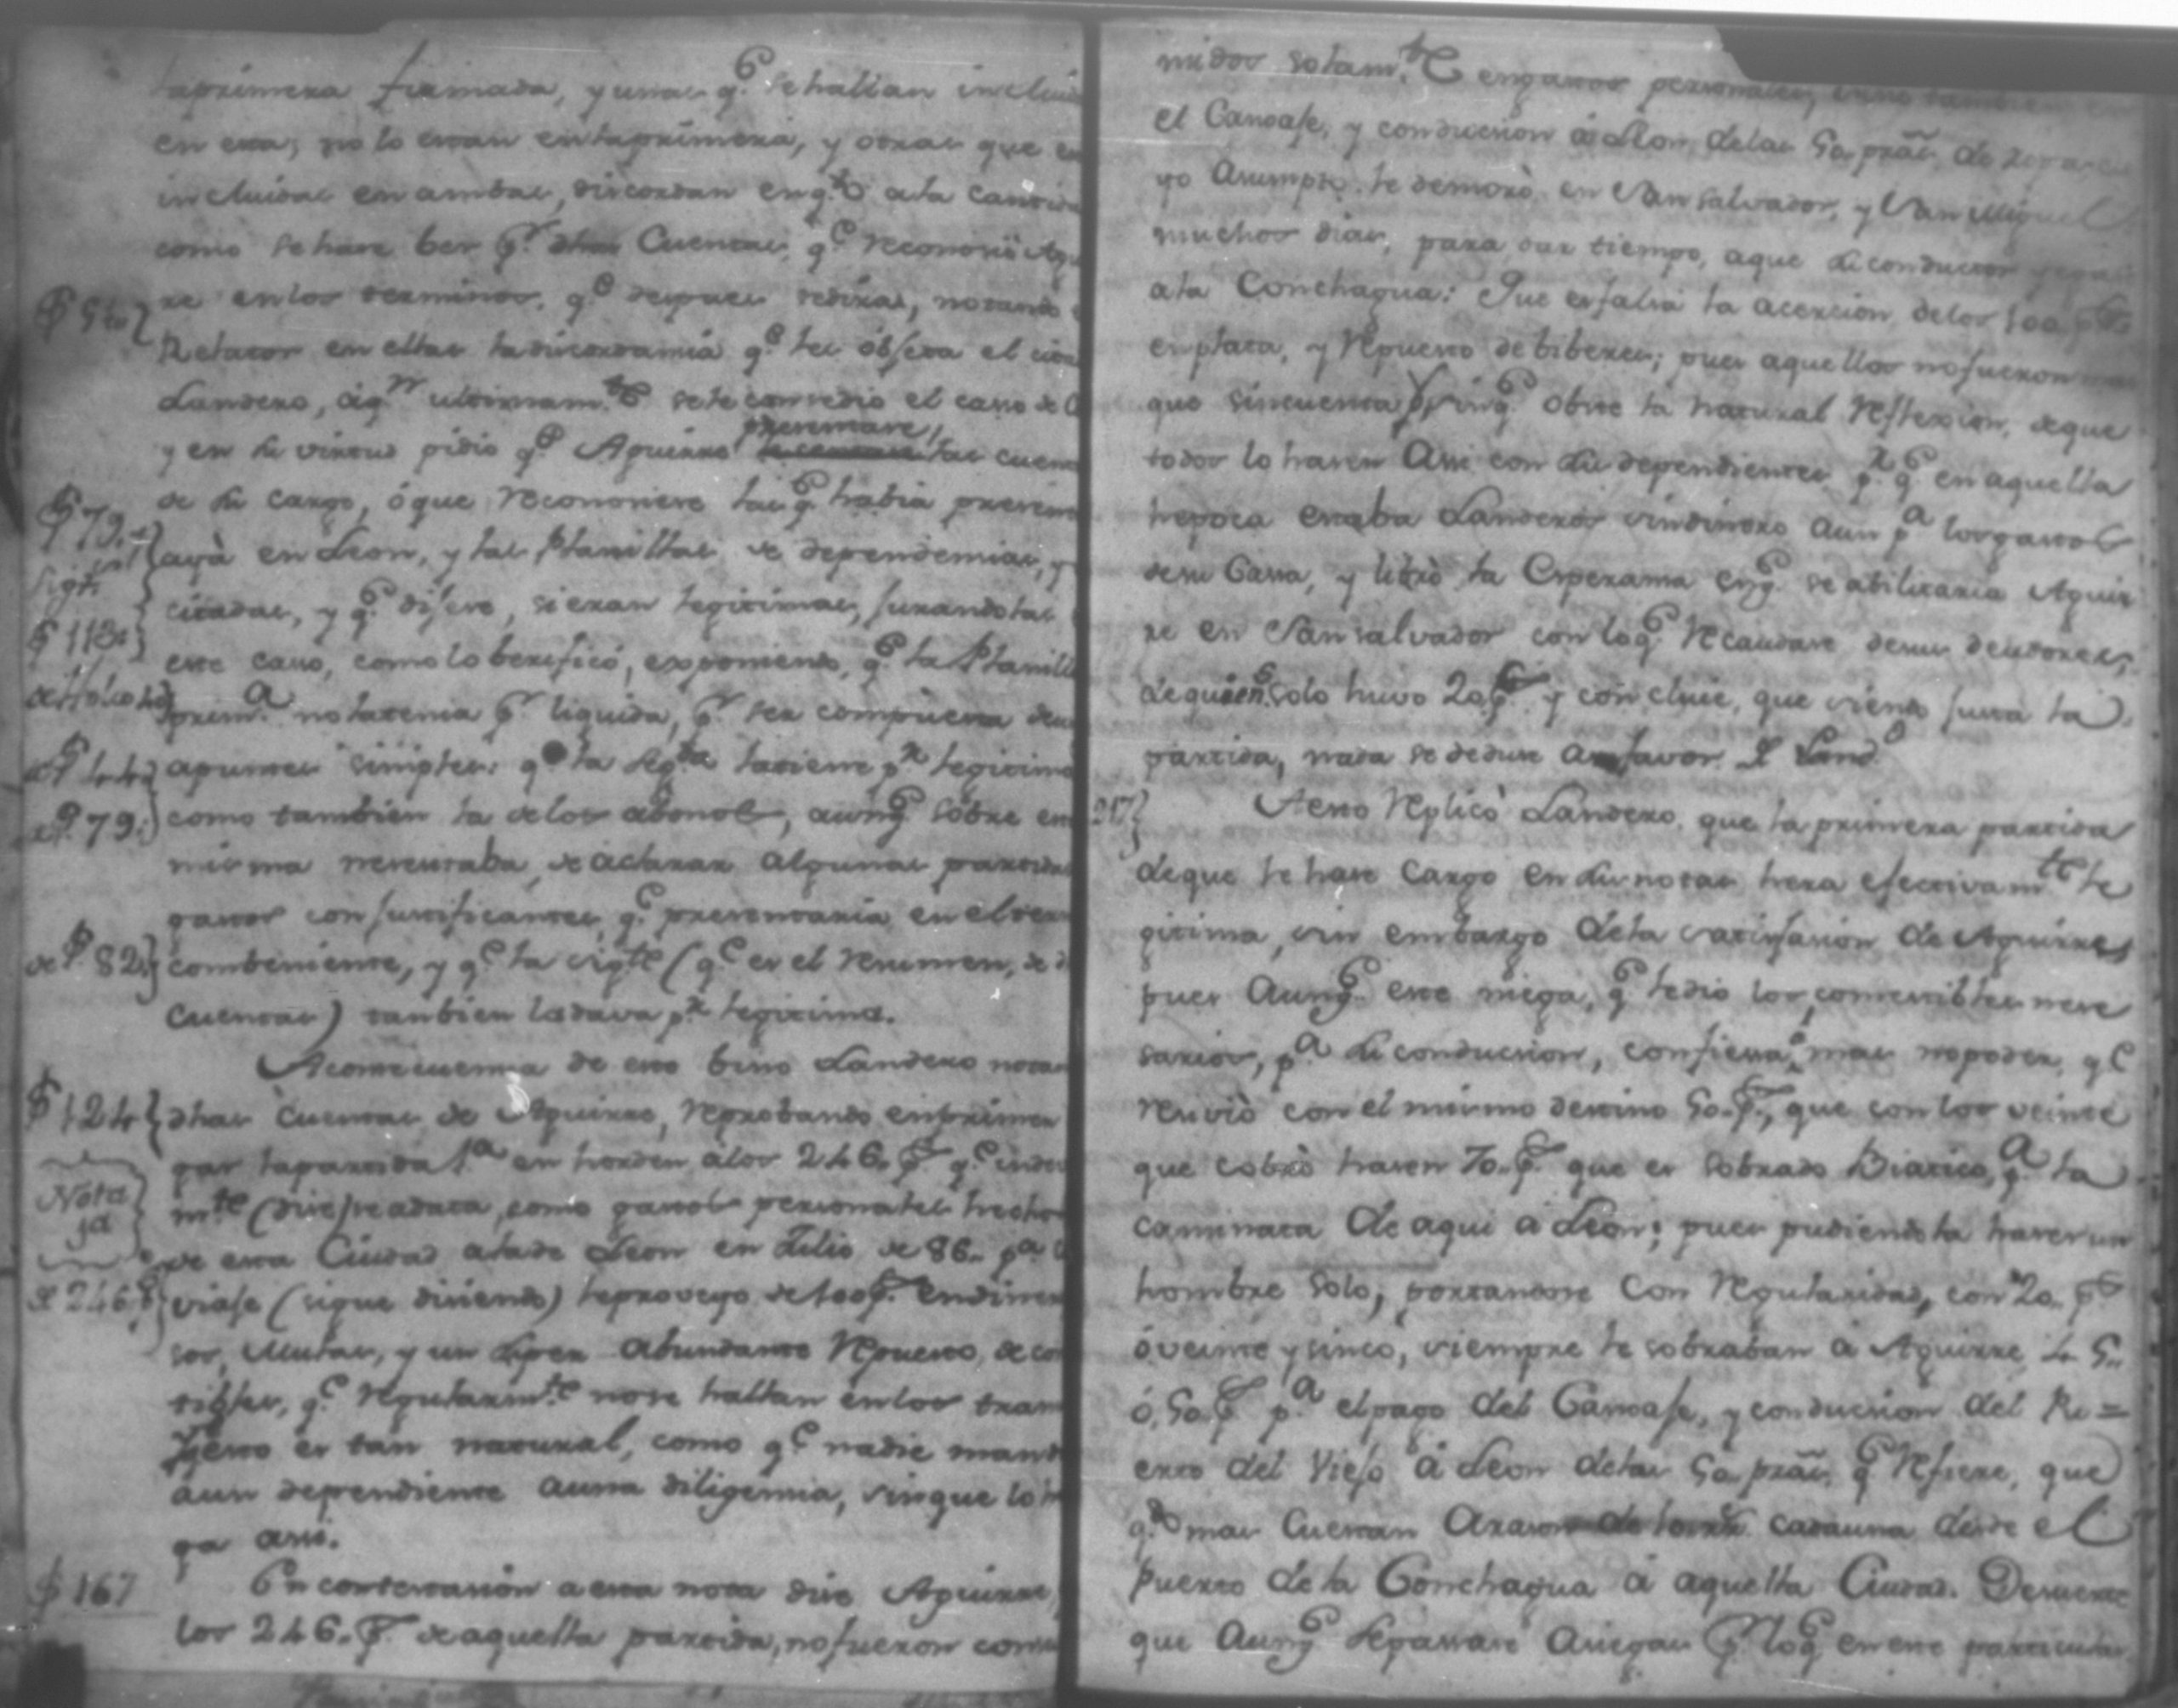 la primera firmada, y unas q.e se hallan inclui
en esta, no lo estan en la primera, y otras que
incluidas en ambas, discordan en q.to a la canti
como se hace ber p.r dhas Cuentas, q.e reconoció Agui
rre en los terminos, q.e despues sedirá, notando
§ 56
Relator en ellas la discordancia q.e les obgeta el
Landero, á q.n ultimam.te se le concedio el caso de
y en su virtud pidio q.e Aguirre presentase las cuen
de su cargo, ó que reconociere las q.e habia presen
§ 73
sig.te
aya en Leon, y las Planillas de dependencias, y
citadas, y q.e dijere, si eran legitimas, jurandolas
§ 118
este caso, como lo berificó, exponiendo, q.e la Planill
prim.a no la tenia p.r liquida, p.r ser compuesta
apuntes simples: q.e la seg.da la tiene p.r legitima
§ 79.
como tambien la de los abonos, aunq.e sobre
misma necesitaba, de aclarar algunas partida
gastos con justificantes, q.e presentaria en el
de § 82
combeniente, y q.e la sig.te (q.e es el resumen, de
Cuentas) tanbien la dava p.r legitima.
A consecuencia de esto bino Landero nota
§ 124
dhas Cuentas de Aguirre, reprobando en primer
gar la partida 1.a en horden a los 246. p.s q.e
Nota
1a
m.te (dice) se adata, como gastos personales hechos
de esta Ciudad a la de Leon en Julio de 86. p.a
§ 246 p.s
viaje (sigue diciendo) le proveyo de 100 p.s en dine
sos, Mulas, y un super abundante Repuesto, de co
tibles, q.e regularm.te no se hallan en los tran
y esto es tan natural, como q.e nadie mand
a un dependiente a una diligencia, sin que lo
ga asi.
§ 167
En contestación a esta nota dice Aguirre,
los 246. p.s de aquella partida, no fueron consu
midos solam.te en gastos personales, sino tambien en
el Canoaje, y conducion á Leon de las 50 pzas de
yo Asumpto se demoró en San salvador, y San Miguel
muchos dias, para dar tiempo, a que su conductor
a la Conchagua: Que es falsa la acercion de los 100 p.s
en plata, y Repuesto de biberes; pues aquellos no fueron mas
que sincuenta p.s sin q.e obste la natural reflexion, de que
todos lo hacen Asi con sus dependientes p.r q.e en aquella
hepoca estaba Landero sin dinero aun p.a los gastos
de su Casa, y libró la Esperansa en q.e se abilitaria Aguir
re en San salvador con lo q.e recaudase de sus deudores,
de quienes solo huvo 20 p.s y concluie, que siendo justa la
partida, nada se deduce a su favor d Land.o
217
A esto replicó Landero que la primera partida
de que se hase Cargo en sus notas hera efectivam.te le
gitima, sin embargo de la satisfasion de Aguirre,
pues Aunq.e este niega, q.e le dio los comestibles nece
sarios, p.a su conducsion, confiesa mas no poder, q.e
resivió con el mismo destino 50. p.s, que con los veinte
que cobró hacen 70. p.s que es sobrado Biatico, p.a la
caminata de aqui á Leon; pues pudiendola hacer un
hombre solo, portandose con regularidad, con 20. p.s
ó veinte y sinco, siempre le sobraban á Aguirre 45.
ó, 50. p.s p.a el pago del Canoaje, y conducsion del Re=
exto del Viejo á Leon de las 50 pzas q.e refiere, que
q.do mas Cuestan A razon cada una desde el
puerto de la Conchagua á aquella Ciudad. Desuerte
que Aunq.e se pasase A siegas p.r lo q.e en este particular